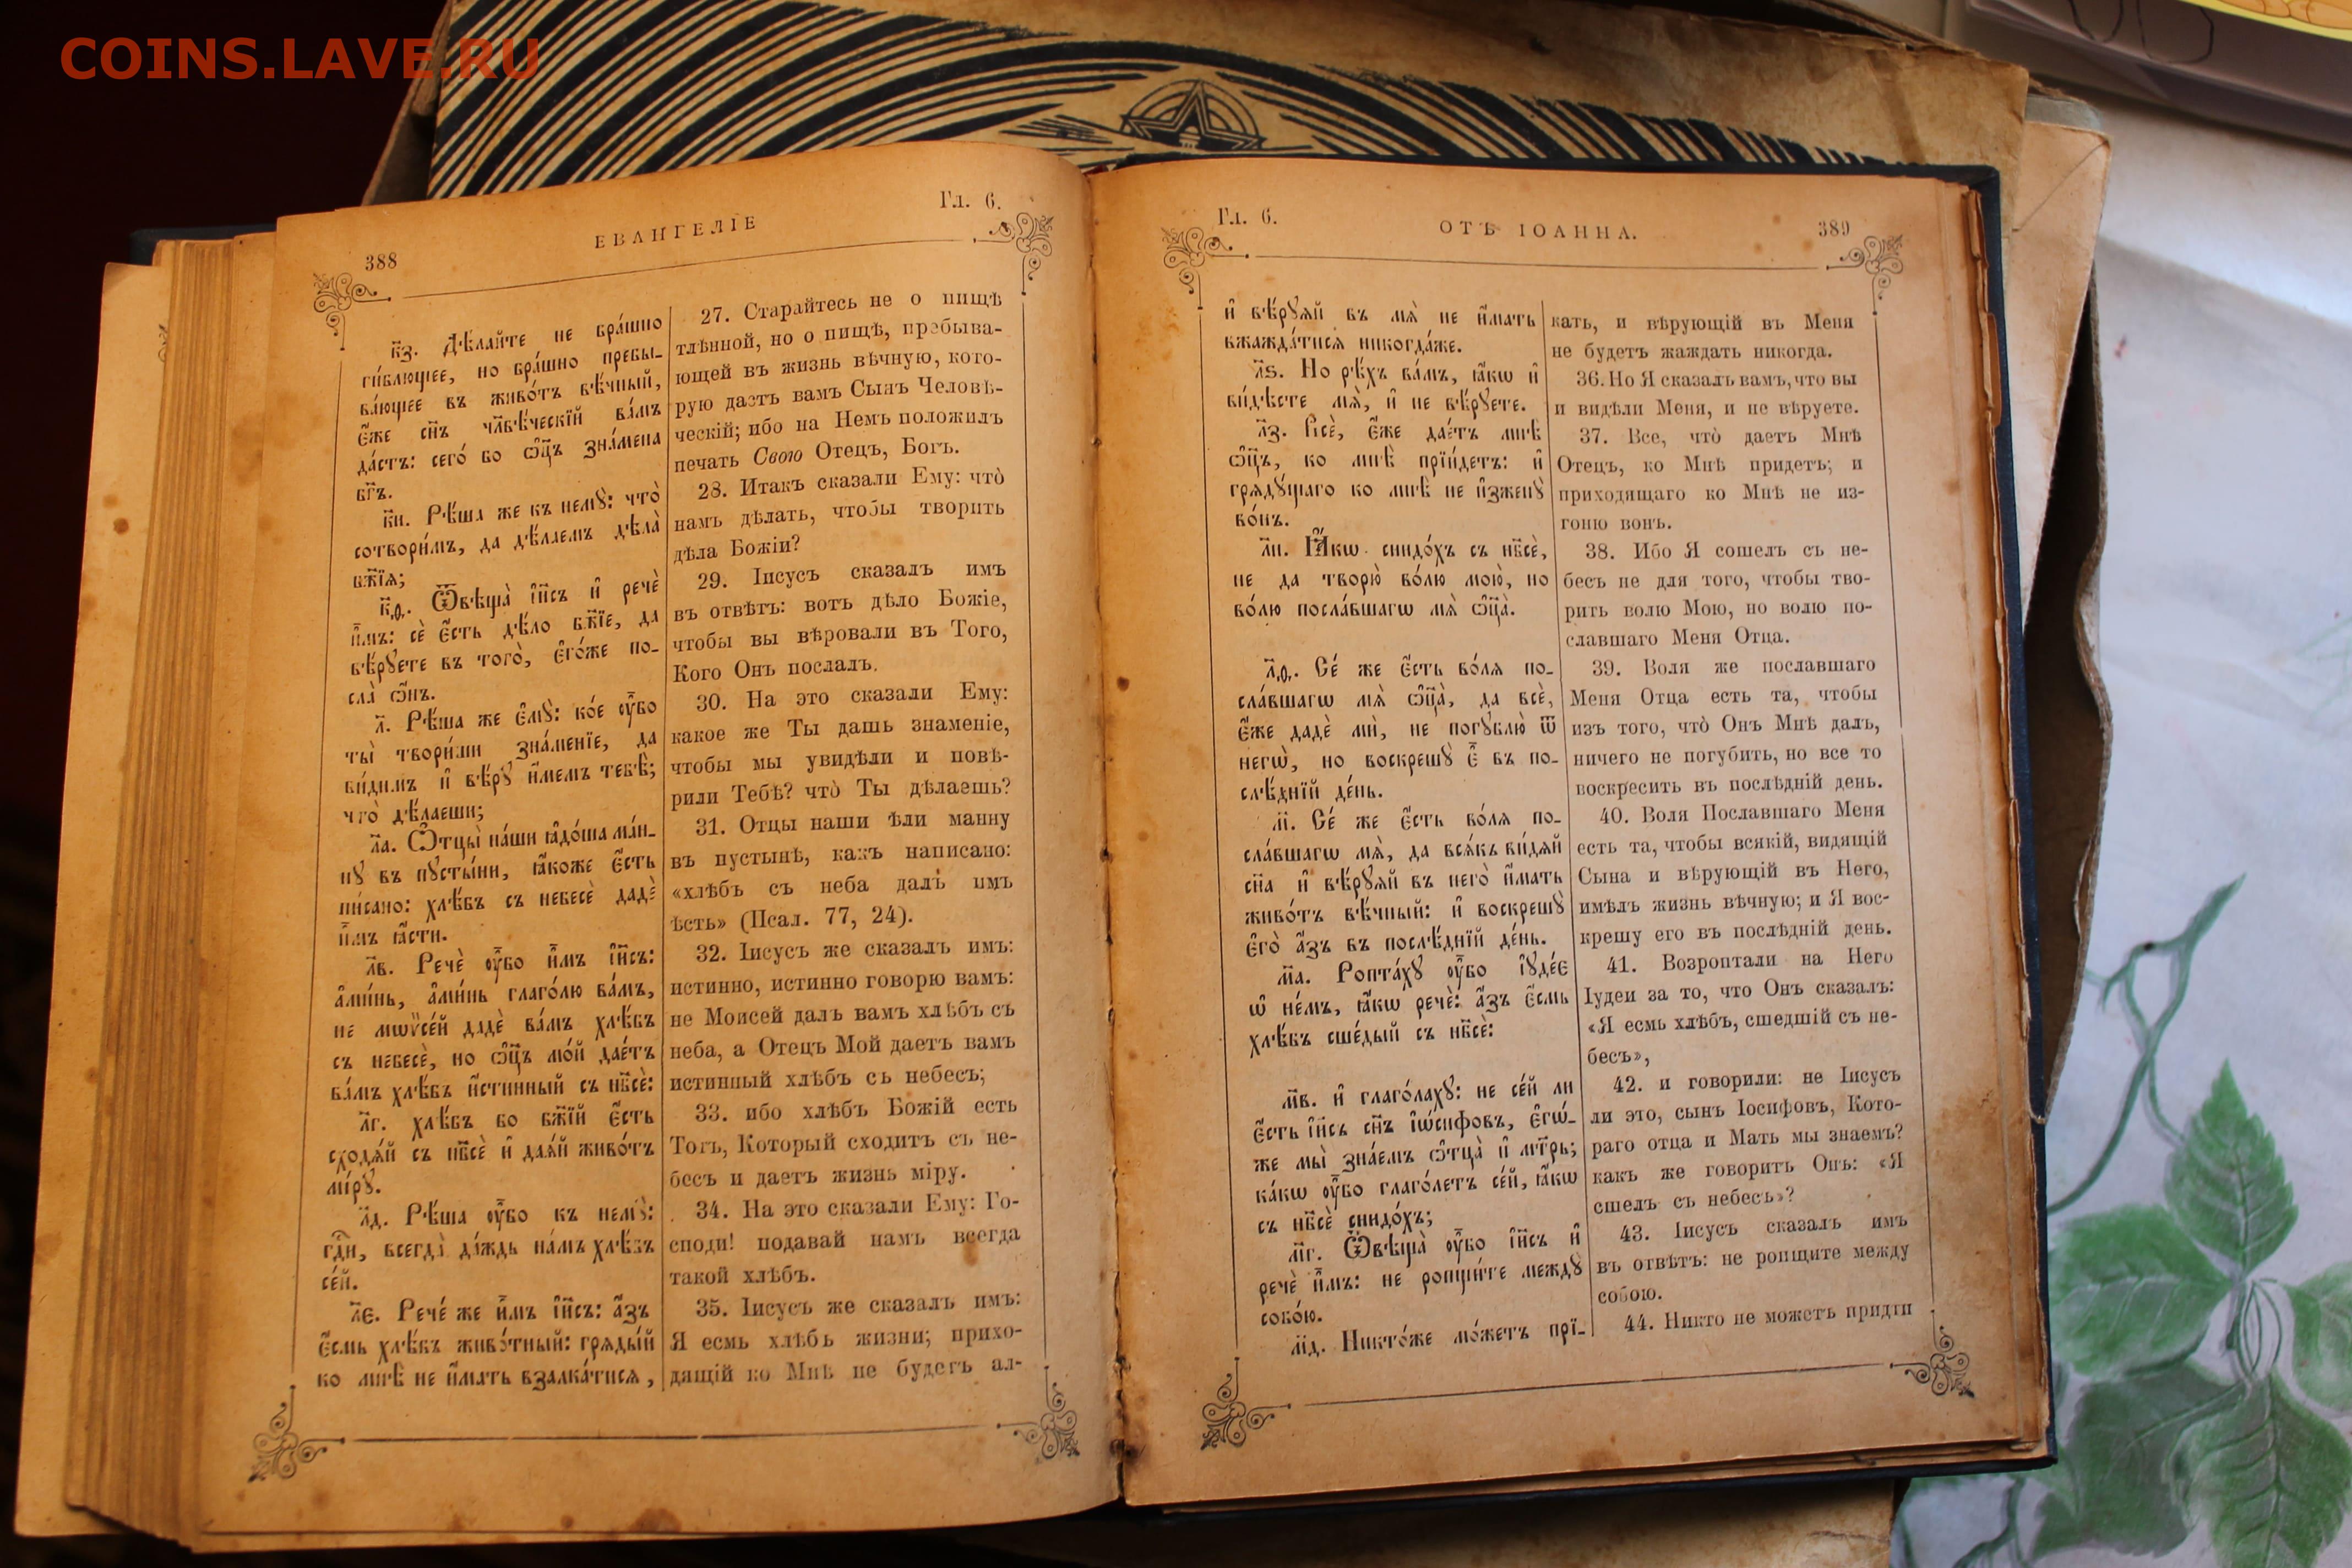 COINS.LAVE.RU
388
ЕВАНГЕЛІЕ
Гл. 6.
к҃з. Дѣ́лайте не бра́шно
ги́блющее, но бра́шно пребы-
ва́ющее въ живо́тъ вѣ́чный,
є҆́же сн҃ъ чл҃вѣ́ческїй ва́мъ
да́стъ: сего́ бо ѻ҆ц҃ъ зна́мена
бг҃ъ.
к҃и. Рѣ́ша же къ немꙋ̀: что̀
сотвори́мъ, да дѣ́лаемъ дѣла̀
бж҃їѧ;
к҃ѳ. Ѿвѣща̀ і҆и҃съ и҆ речѐ
и҆̀мъ: сѐ є҆́сть дѣ́ло бж҃їе, да
вѣ́рꙋете въ того̀, є҆го́же по-
сла̀ ѻ҆́нъ.
л҃. Рѣ́ша же є҆мꙋ̀: ко́е ᲂу҆̀бо
ты̀ твори́ши зна́менїе, да
ви́димъ и҆ вѣ́рꙋ и҆́мемъ тебѣ̀;
что̀ дѣ́лаеши;
л҃а. Ѻ҆тцы̀ на́ши ꙗ҆до́ша ма́н-
нꙋ въ пꙋсты́ни, ꙗ҆́коже є҆́сть
пи́сано: хлѣ́бъ съ небесѐ дадѐ
и҆̀мъ ꙗ҆́сти.
л҃в. Речѐ ᲂу҆̀бо и҆̀мъ і҆и҃съ:
а҆ми́нь, а҆ми́нь глаго́лю ва́мъ,
не мѡѷсе́й дадѐ ва́мъ хлѣ́бъ
съ небесѐ, но ѻ҆ц҃ъ мо́й дае́тъ
ва́мъ хлѣ́бъ и҆́стинный съ нб҃сѐ:
л҃г. хлѣ́бъ бо бж҃їй є҆́сть
сходѧ́й съ нб҃сѐ и҆ даѧ́й живо́тъ
мі́рꙋ.
л҃д. Рѣ́ша ᲂу҆̀бо къ немꙋ̀:
гд҇и, всегда̀ да́ждь на́мъ хлѣ́бъ
се́й.
л҃є. Рече́ же и҆̀мъ і҆и҃съ: а҆́зъ
є҆́смь хлѣ́бъ живо́тный: грѧды́й
ко мнѣ̀ не и҆́мать взалка́тисѧ,
27. Старайтесь не о пищѣ
тлѣнной, но о пищѣ, пребыва-
ющей въ жизнь вѣчную, кото-
рую дастъ вамъ Сынъ Человѣ-
ческій; ибо на Немъ положилъ
печать Свою Отецъ, Богъ.
28. Итакъ сказали Ему: что̀
намъ дѣлать, чтобы творить
дѣла Божіи?
29. Іисусъ сказалъ имъ
въ отвѣтъ: вотъ дѣло Божіе,
чтобы вы вѣровали въ Того,
Кого Онъ послалъ.
30. На это сказали Ему:
какое же Ты дашь знаменіе,
чтобы мы увидѣли и повѣ-
рили Тебѣ? что̀ Ты дѣлаешь?
31. Отцы наши ѣли манну
въ пустынѣ, какъ написано:
«хлѣбъ съ неба далъ имъ
ѣсть» (Псал. 77, 24).
32. Іисусъ же сказалъ имъ:
истинно, истинно говорю вамъ:
не Моисей далъ вамъ хлѣбъ съ
неба, а Отецъ Мой даетъ вамъ
истинный хлѣбъ съ небесъ;
33. ибо хлѣбъ Божій есть
Тотъ, Который сходитъ съ не-
бесъ и даетъ жизнь міру.
34. На это сказали Ему: Го-
споди! подавай намъ всегда
такой хлѣбъ.
35. Іисусъ же сказалъ имъ:
Я есмь хлѣбъ жизни; прихо-
дящій ко Мнѣ не будетъ ал-
Гл. 6.
ОТЪ ІОАННА.
389
и҆ вѣ́рꙋѧй въ мѧ̀ не и҆́мать
вжажда́тисѧ никогда́же.
л҃ѕ. Но рѣ́хъ ва́мъ, ꙗ҆́кѡ и҆
ви́дѣсте мѧ̀, и҆ не вѣ́рꙋете.
л҃з. Всѐ, є҆́же дае́тъ мнѣ̀
ѻ҆ц҃ъ, ко мнѣ̀ прїи́детъ: и҆
грѧдꙋ́щаго ко мнѣ̀ не и҆зженꙋ̀
во́нъ.
л҃и. Ꙗ҆́кѡ снидо́хъ съ нб҃сѐ,
не да творю̀ во́лю мою̀, но
во́лю посла́вшагѡ мѧ̀ ѻ҆ц҃а̀.
л҃ѳ. Се́ же є҆́сть во́лѧ по-
сла́вшагѡ мѧ̀ ѻ҆ц҃а̀, да всѐ,
є҆́же дадѐ мѝ, не погꙋблю̀ ѿ
негѡ̀, но воскрешꙋ̀ є҆̀ въ по-
слѣ́днїй де́нь.
м҃. Се́ же є҆́сть во́лѧ по-
сла́вшагѡ мѧ̀, да всѧ́къ ви́дѧй
сн҃а и҆ вѣ́рꙋѧй въ него̀ и҆́мать
живо́тъ вѣ́чный: и҆ воскрешꙋ̀
є҆го̀ а҆́зъ въ послѣ́днїй де́нь.
м҃а. Ропта́хꙋ ᲂу҆̀бо і҆ꙋде́є
ѡ҆ не́мъ, ꙗ҆́кѡ речѐ: а҆́зъ є҆́смь
хлѣ́бъ сше́дый съ нб҃сѐ:
м҃в. и҆ глаго́лахꙋ: не се́й ли
є҆́сть і҆и҃съ сн҃ъ і҆ѡ́сифовъ, є҆гѡ́-
же мы̀ зна́емъ ѻ҆тца̀ и҆ мт҃рь;
ка́кѡ ᲂу҆̀бо глаго́летъ се́й, ꙗ҆́кѡ
съ нб҃сѐ снидо́хъ;
м҃г. Ѿвѣща̀ ᲂу҆̀бо і҆и҃съ и҆
речѐ и҆̀мъ: не ропщи́те междꙋ̀
собо́ю.
м҃д. Никто́же мо́жетъ прї-
кать, и вѣрующій въ Меня
не будетъ жаждать никогда.
36. Но Я сказалъ вамъ, что вы
и видѣли Меня, и не вѣруете.
37. Все, что̀ даетъ Мнѣ
Отецъ, ко Мнѣ придетъ; и
приходящаго ко Мнѣ не из-
гоню вонъ.
38. Ибо Я сошелъ съ не-
бесъ не для того, чтобы тво-
рить волю Мою, но волю по-
славшаго Меня Отца.
39. Воля же пославшаго
Меня Отца есть та, чтобы
изъ того, что̀ Онъ Мнѣ далъ,
ничего не погубить, но все то
воскресить въ послѣдній день.
40. Воля Пославшаго Меня
есть та, чтобы всякій, видящій
Сына и вѣрующій въ Него,
имѣлъ жизнь вѣчную; и Я вос-
крешу его въ послѣдній день.
41. Возроптали на Него
Іудеи за то, что Онъ сказалъ:
«Я есмь хлѣбъ, сшедшій съ не-
бесъ»,
42. и говорили: не Іисусъ
ли это, сынъ Іосифовъ, Кото-
раго отца и Мать мы знаемъ?
какъ же говоритъ Онъ: «Я
сшелъ съ небесъ»?
43. Іисусъ сказалъ имъ
въ отвѣтъ: не ропщите между
собою.
44. Никто не можетъ придти